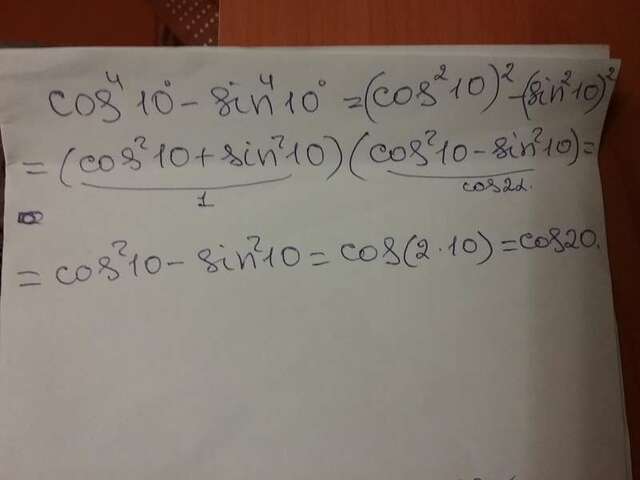 cos⁴10° - sin⁴10° = (cos²10)² - (sin²10)²
= (cos²10 + sin²10)(cos²10 - sin²10) =
1 cos2α.
= cos²10 - sin²10 = cos(2·10) = cos20.